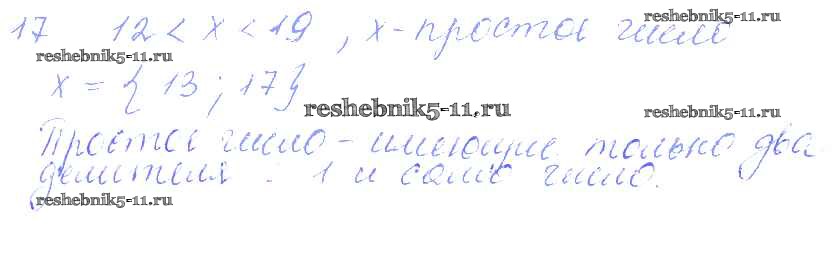 17 12 < x < 19, x - простое число
reshebnik5-11.ru
reshebnik5-11.ru
x = { 13 ; 17}
reshebnik5-11.ru
reshebnik5-11.ru
Простое число - имеющие только два
делителя : 1 и само число.
reshebnik5-11.ru
reshebnik5-11.ru